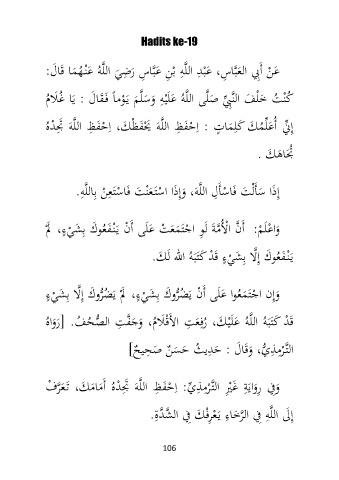 Hadits ke-19
عَنْ أَبِي العَبَّاسِ، عَبْدِ اللَّهِ بْنِ عَبَّاسٍ رَضِيَ اللَّهُ عَنْهُمَا قَالَ:
كُنْتُ خَلْفَ النَّبِيِّ صَلَّى اللَّهُ عَلَيْهِ وَسَلَّمَ يَوْماً فَقَالَ : يَا غُلَامُ
إِنِّي أُعَلِّمُكَ كَلِمَاتٍ : اِحْفَظِ اللَّهَ يَحْفَظْكَ، اِحْفَظِ اللَّهَ تَجِدْهُ
تُجَاهَكَ .
إِذَا سَأَلْتَ فَاسْأَلِ اللَّهَ، وَإِذَا اسْتَعَنْتَ فَاسْتَعِنْ بِاللَّهِ.
وَاعْلَمْ: أَنَّ الْأُمَّةَ لَوِ اجْتَمَعَتْ عَلَى أَنْ يَنْفَعُوكَ بِشَيْءٍ، لَمْ
يَنْفَعُوكَ إِلَّا بِشَيْءٍ قَدْ كَتَبَهُ الله لَكَ.
وَإِن اجْتَمَعُوا عَلَى أَنْ يَضُرُّوكَ بِشَيْءٍ، لَمْ يَضُرُّوكَ إِلَّا بِشَيْءٍ
قَدْ كَتَبَهُ اللَّهُ عَلَيْكَ، رُفِعَتِ الأَقْلَامُ، وَجَفَّتِ الصُّحُفُ. [رَوَاهُ
التِّرْمِذِيُّ، وَقَالَ : حَدِيثٌ حَسَنٌ صَحِيحٌ]
وَفِي رِوَايَةِ غَيْرِ التِّرْمِذِيِّ: اِحْفَظِ اللَّهَ تَجِدْهُ أَمَامَكَ، تَعَرَّفْ
إِلَى اللَّهِ فِي الرَّخَاءِ يَعْرِفْكَ فِي الشِّدَّةِ.
106